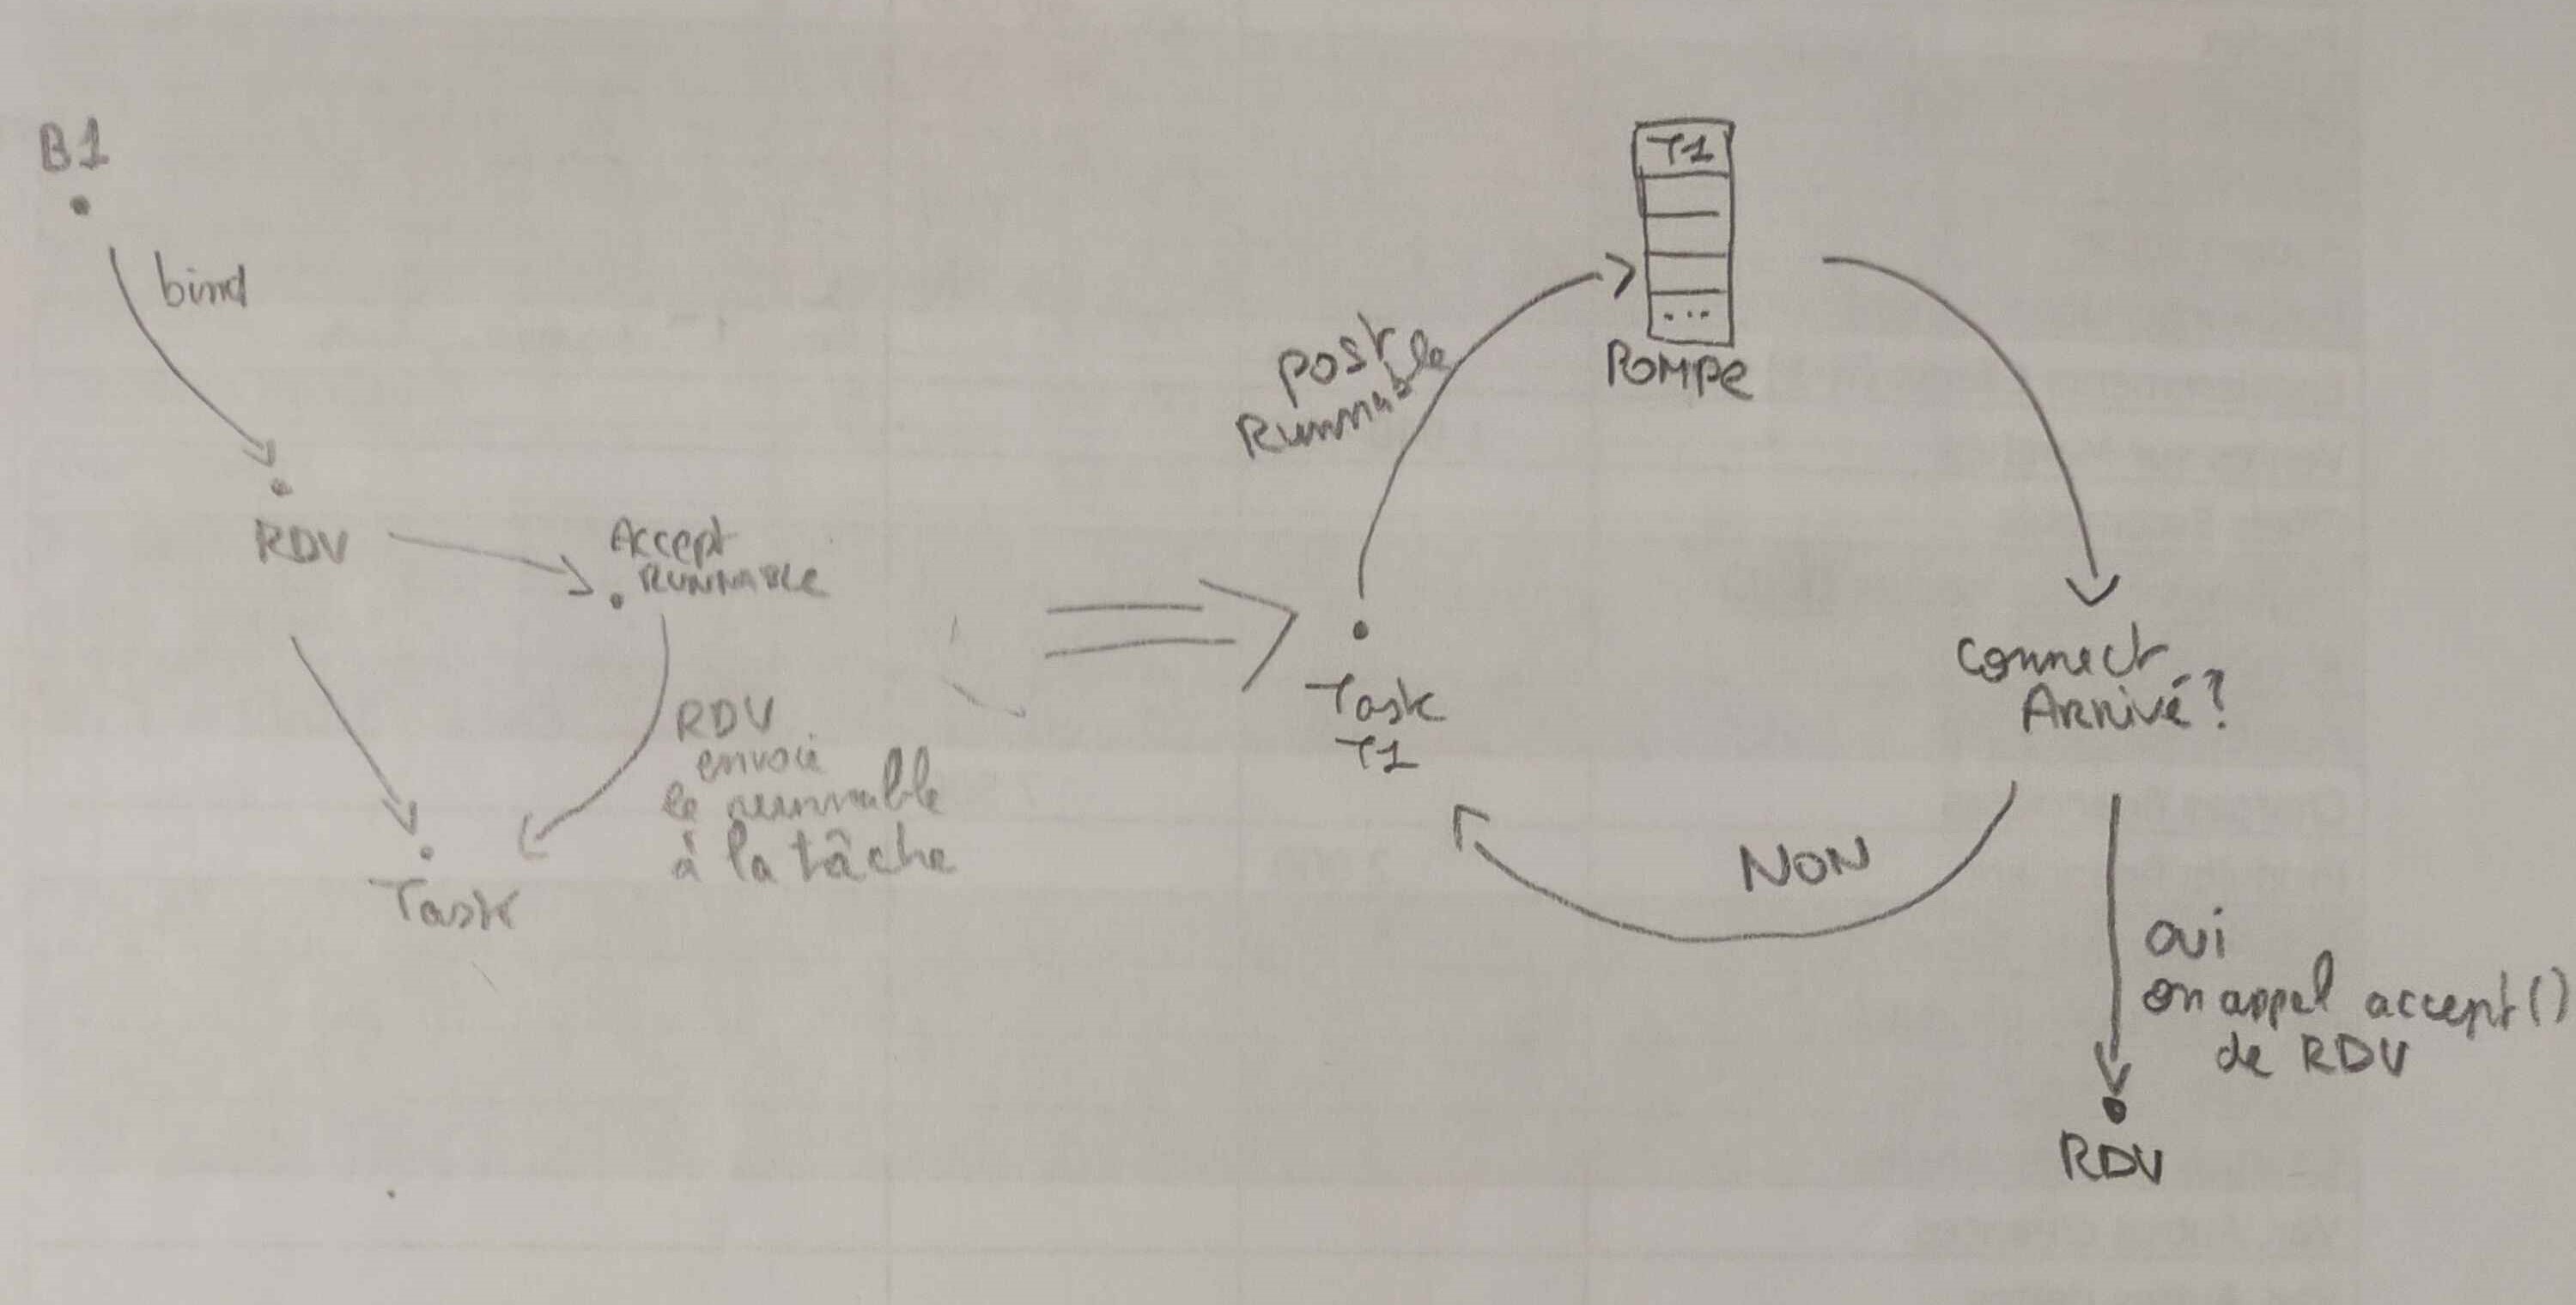 B1
bind
RDV
Accept
RUNNABLE
RDV
envoie
le runnable
à la tâche
Task
T1
...
POMPE
POST
Runnable
Task
T1
Connect
Arrivé ?
NON
oui
on appel accept()
de RDV
RDV